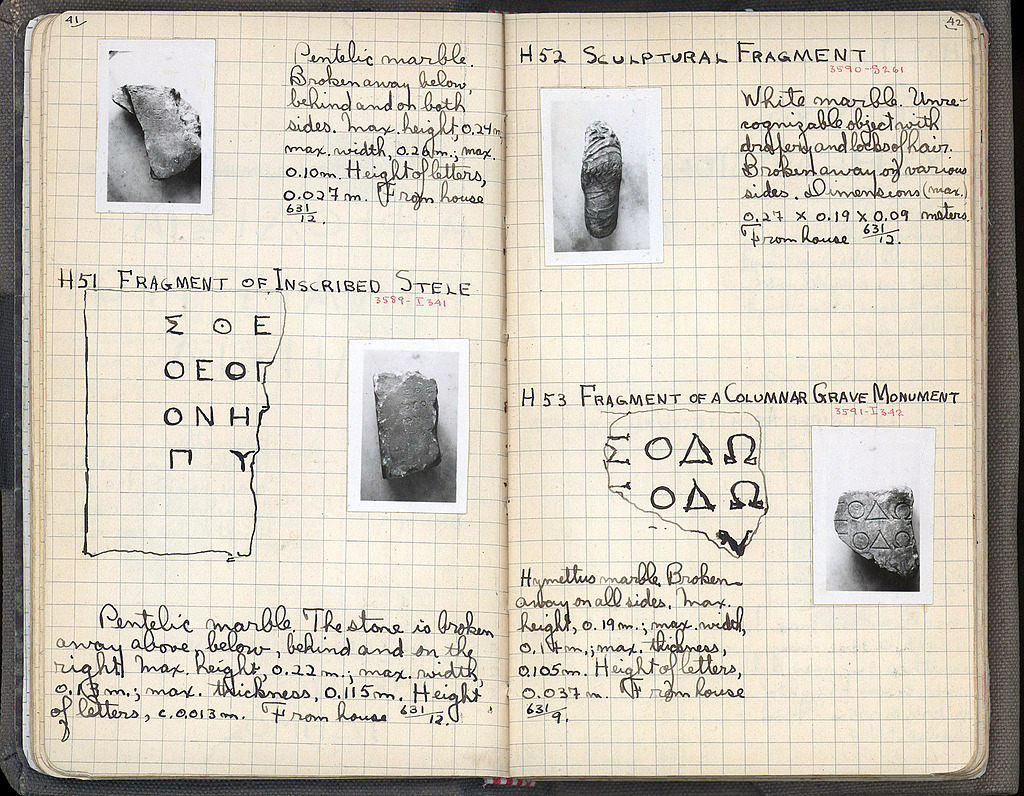 41
Pentelic marble.
Broken away below,
behind and on both
sides. Max. height, 0.24 m.
max. width, 0.26 m.; max.
0.10 m. Height of letters,
0.027 m. From house
631/12.
H51 FRAGMENT OF INSCRIBED STELE
3589-I 341
Σ ΟΕ
ΟΕΟΓ
ΟΝΗ
Π Υ
Pentelic marble. The stone is broken
away above, below, behind and on the
right. Max. height, 0.22 m.; max. width,
0.13 m.; max. thickness, 0.115 m. Height
of letters, c. 0.013 m. From house 631/12.
42
H52 SCULPTURAL FRAGMENT
3590-S261
White marble. Unre-
cognizable object with
drapery and locks of hair.
Broken away on various
sides. Dimensions (max.)
0.27 x 0.19 x 0.09 meters.
From house 631/12.
H53 FRAGMENT OF A COLUMNAR GRAVE MONUMENT
3591-I 342
ΣΟΔΩ
ΟΔΩ
Hymettus marble. Broken
away on all sides. Max.
height, 0.19 m.; max. width,
max. thickness,
0.105 m. Height of letters,
0.037 m. From house
631/9.